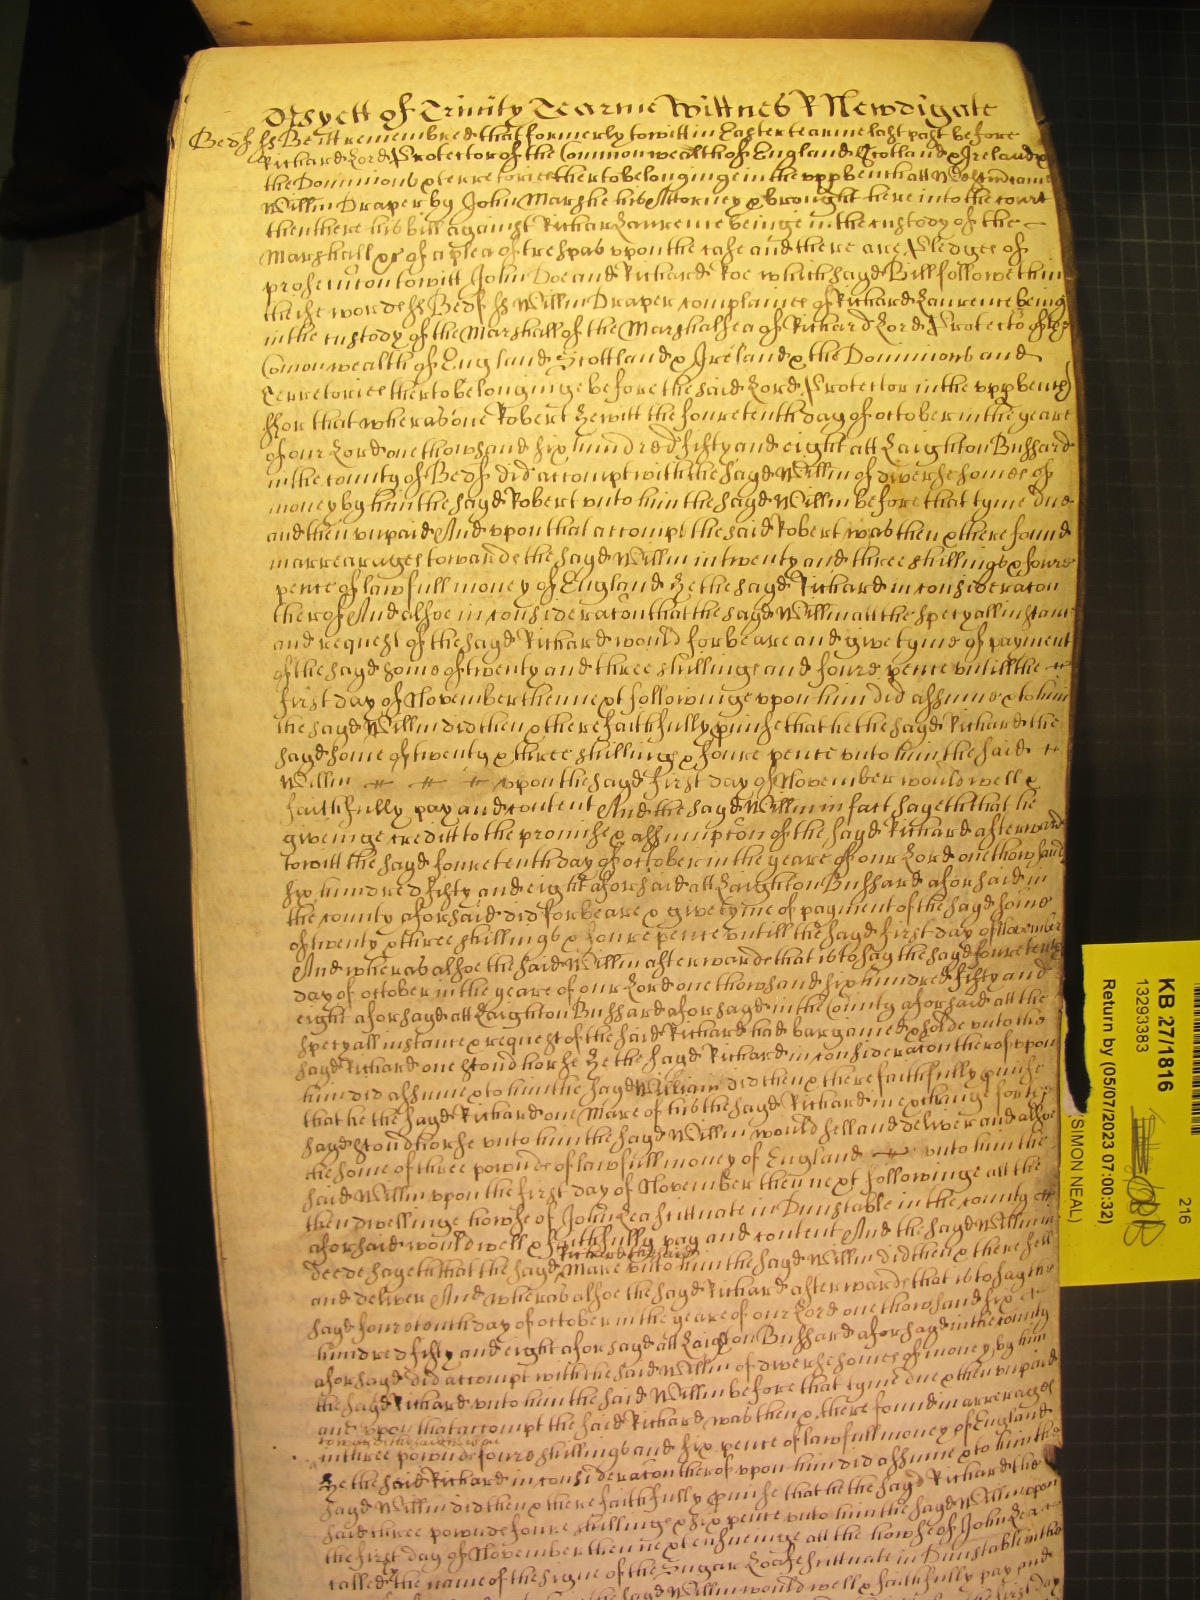 As yett of Trinity Tearme Wittnes R Newdigate
Bedf ss Be itt remembred that formerly to witt in Easter tearme last past before
Richard Lord Protector of the Commonwealth of England Scotland & Ireland &
the Dominions & terretories therto belonginge in the upp bench att Westm came
Willm Draper by John Marshe his Attorney & brought here into the court
then there his bill against Richard Laurence beinge in the custody of the
Marshall &c of a plea of trespas upon the case and there are Pledges of
prosecucon to witt John Doe and Richard Roe which sayd Bill followeth in
these wordes ss Bedf ss Willm Draper complaines of Richard Laurence being
in the custody of the Marshall of the Marshalsea of Richard Lord Protector of the
Comonwealth of England Scottland & Ireland & the Dominions and
Terretories therto belonginge before the said Lord Protector in the upp bench
ffor that wheras one Robert Hewitt the fouretenth day of october in the yeare
of our Lord one thowsand six hundred fifty and eight att Laighton Bussard
in the county of Bedf did accompt with the sayd Willm of diverse somes of
money by him the sayd Robert unto him the sayd Willm before that tyme due
and then unpaid And upon that accompt the said Robert was then & there found
in arrearages towards the sayd Willm in twenty and three shillings & foure
pence of lawfull money of England He the sayd Richard in consideracon
therof And alsoe in consideracon that the sayd Willm att the specyall instance
and request of the sayd Richard would forbeare and give tyme of payment
of the sayd some of twenty and three shillings and foure pence untill the
first day of November then next followinge upon him did assume & to him
the sayd Willm did then & there faithfully pmise that he the sayd Richard the
sayd some of twenty & three shillings & foure pence unto him the said
Willm upon the sayd first day of November would well &
faithfully pay and content And the sayd Willm in fact sayeth that he
giveinge creditt to the promise & assumpcon of the sayd Richard afterward
to witt the sayd fouretenth day of october in the yeare of our Lord one thowsand
six hundred fifty and eight aforsaid att Laighton Bussard aforsaid in
the county aforsaid did forbeare & give tyme of payment of the sayd some
of twenty & three shillings & foure pence untill the sayd first day of November
And wheras alsoe the said Willm afterwards that is to say the sayd fouretenth
day of october in the yeare of our Lord one thowsand six hundred fifty and
eight aforsayd att Laighton Bussard aforsayd in the County aforsaid att the
specyall instance & request of the said Richard had bargained & solde unto the
sayd Richard one stond horse He the sayd Richard in consideracon therof upon
him did assume & to him the sayd William did then & there faithfully pmise
that he the sayd Richard one Mare of his the sayd Richard in exchange for the
sayd stond horse unto him the sayd Willm would sell and deliver and alsoe
the some of three pownds of lawfull money of England unto him the
said Willm upon the first day of November then next followinge att the
then dwellinge howse of John Lea scittuate in Dunstable in the county
aforsaid would well & faithfully pay and content And the sayd Willm in
Richard the said
deede sayeth that the sayd Mare unto him the sayd Willm did then & there sell
and deliver And wheras alsoe the sayd Richard afterwards that is to say the
sayd fouretenth day of october in the yeare of our Lord one thowsand six
hundred fifty and eight aforsayd att Laighton Bussard aforsayd in the county
aforsayd did accompt with the said Willm of diverse somes of money by him
the sayd Richard unto him the said Willm before that tyme due & then unpaid
and upon that accompt the said Richard was then & there found in arrerages
towards the said Willm
in three pownds foure shillings and six pence of lawfull money of England
He the said Richard in consideracon therof upon him did assume & to him the
sayd Willm did then & there faithfully pmise that he the sayd Richard the
said three pownds foure shillings & six pence unto him the sayd Willm upon
the first day of November then next ensueinge att the howse of John Lea
called the name of the signe of the Sugar Loafe scittuate in Dunstable in the
the sayd Willm would well & faithfully pay and
the first day
KB 27/1816
13293383
Return by (05/07/2023 07:00:32)
(SIMON NEAL)
216